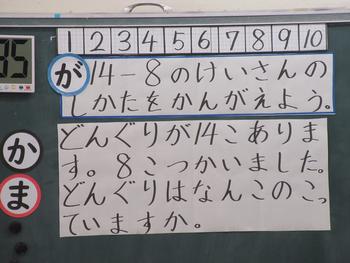 1 2 3 4 5 6 7 8 9 10
が
14-8のけいさんの
しかたをかんがえよう。
か
ま
どんぐりが14こありま
す。8こつかいました。
どんぐりはなんこのこっ
ていますか。